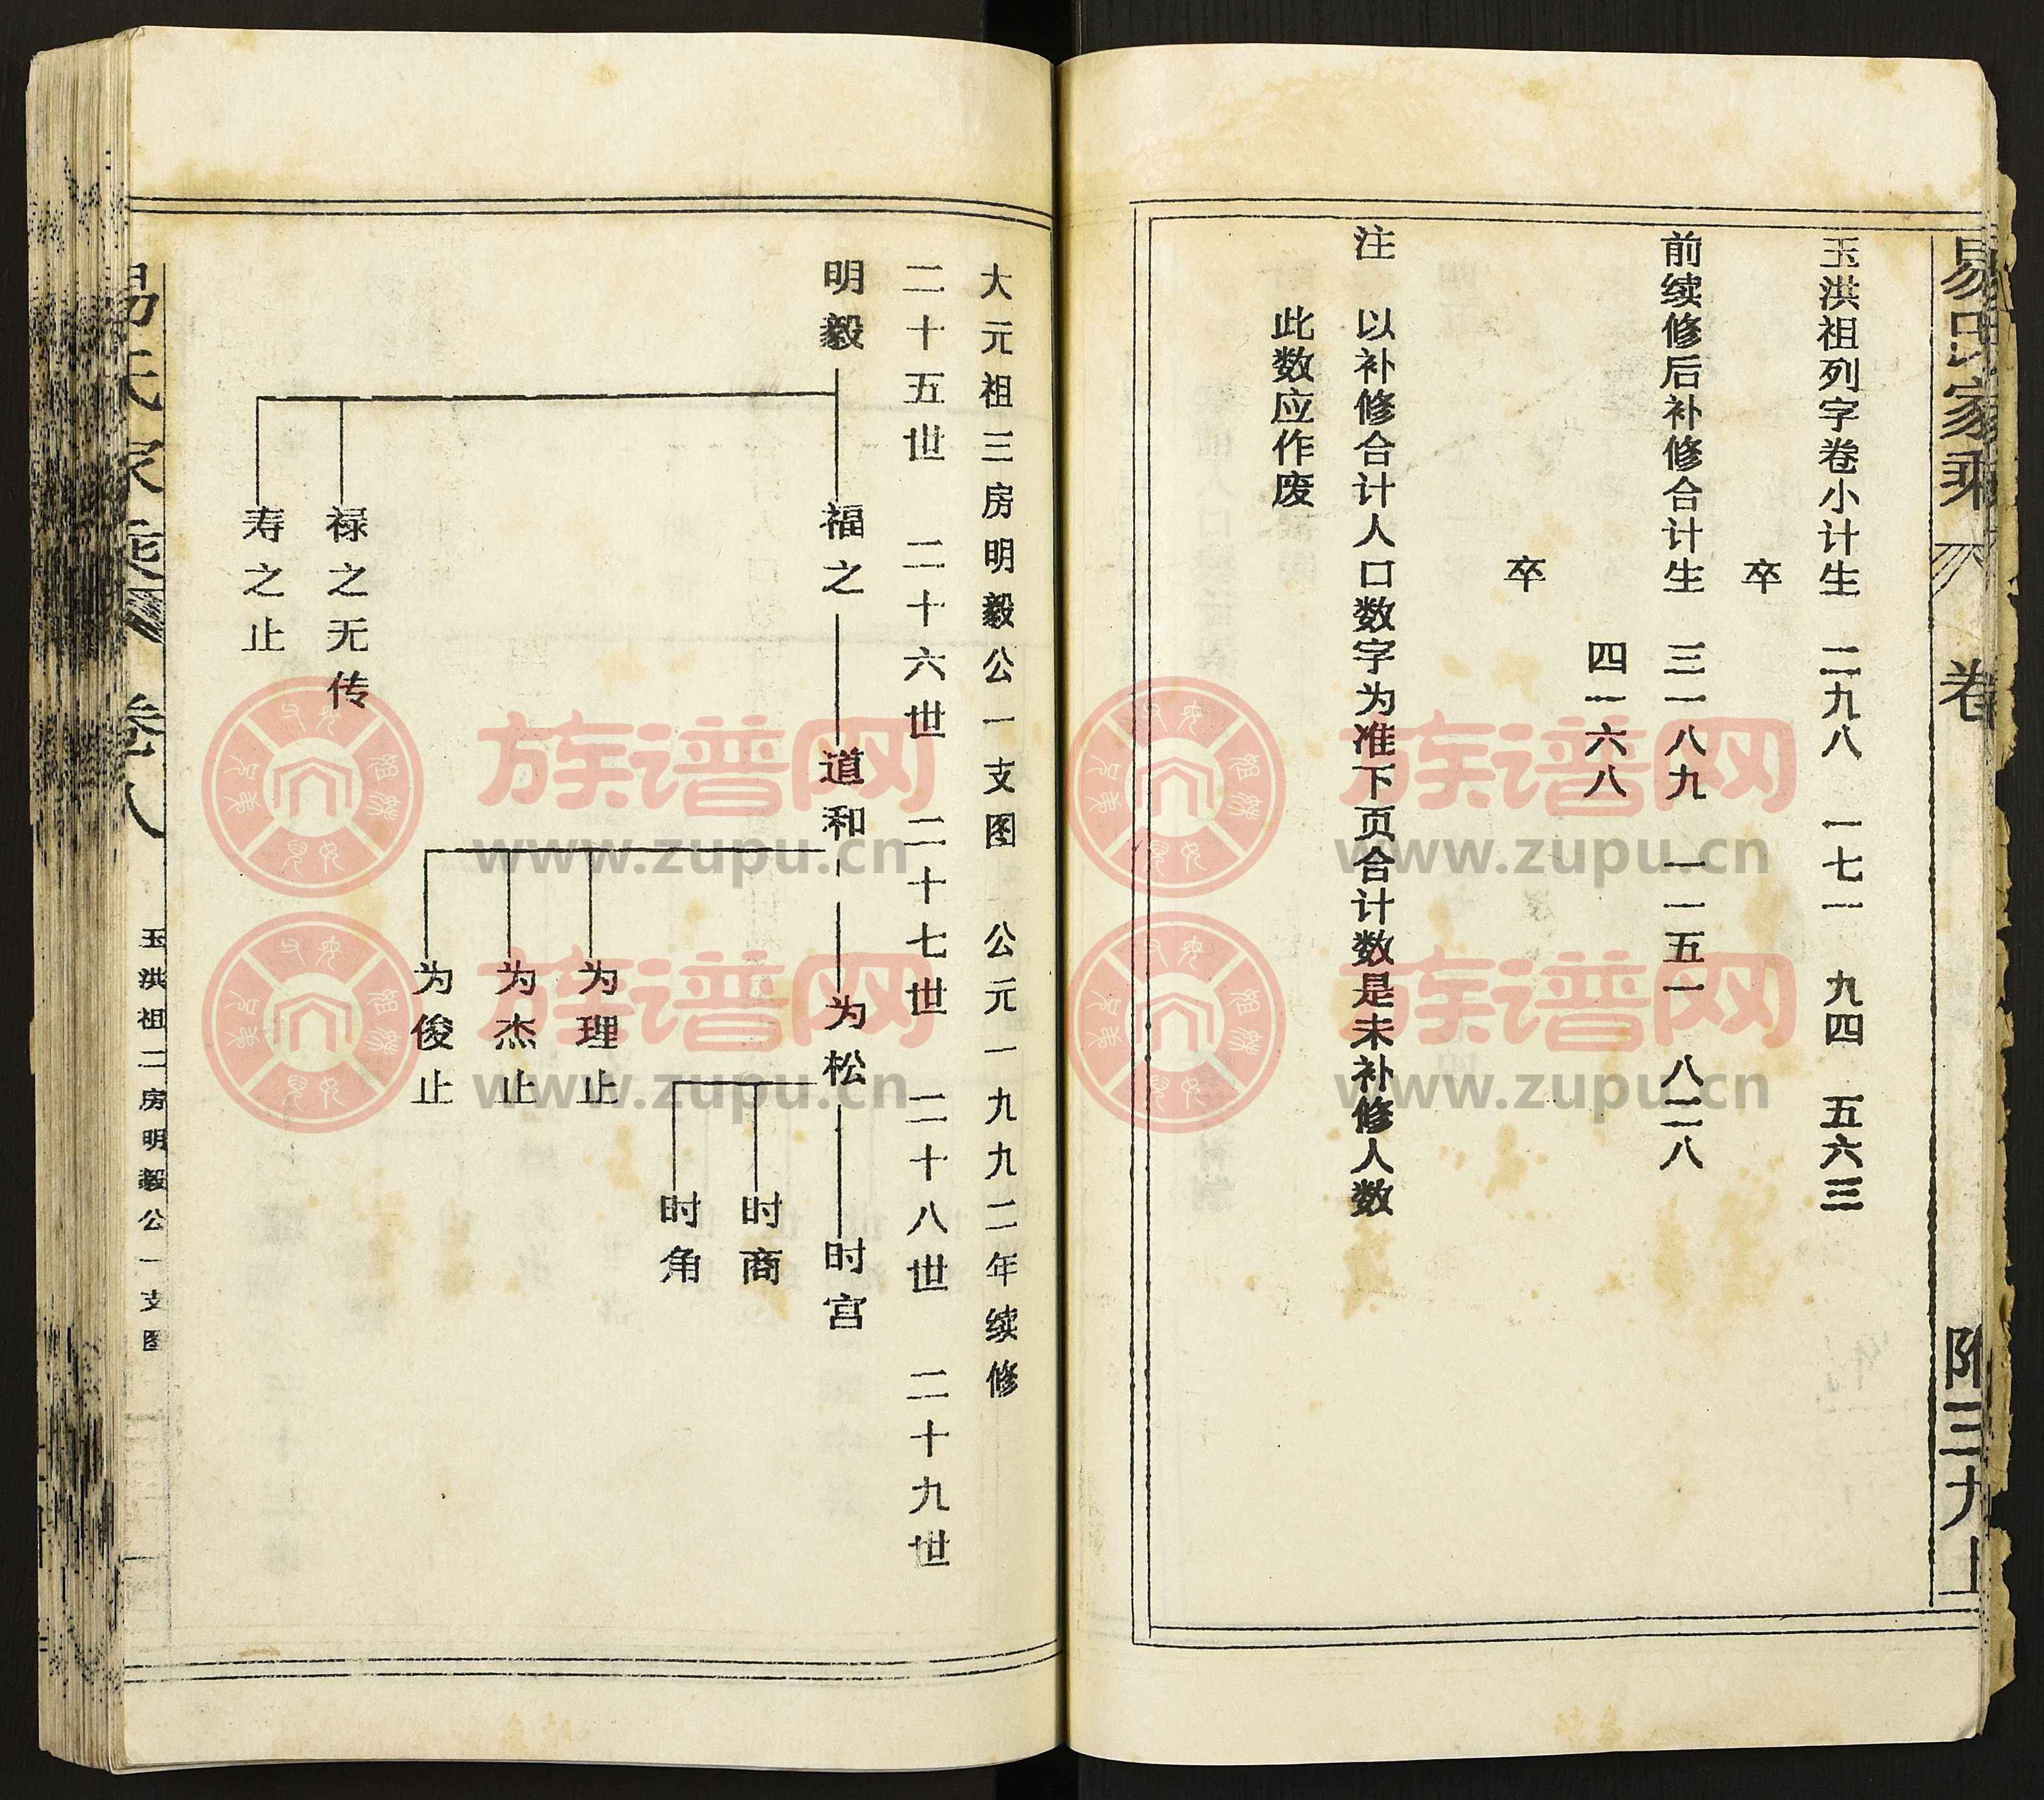 易氏家乘 卷 附三九上
玉洪祖列字卷小计生 二九八 一七一 九四 五六三
卒
前续修后补修合计生 三一八九 一一五一 八二八
四一六八
卒
注 以补修合计人口数字为准下页合计数是未补修人数
此数应作废
大元祖三房明毅公一支图 公元一九九二年续修
二十五世 二十六世 二十七世 二十八世 二十九世
明毅 福之 道和 为松 时宫
时商
时角
为理止
为杰止
为俊止
禄之无传
寿之止
易氏家乘 卷八 玉洪祖二房明毅公一支图
族谱网
www.zupu.cn
族谱网
www.zupu.cn
族谱网
www.zupu.cn
族谱网
www.zupu.cn